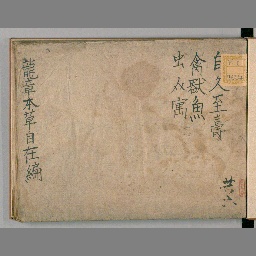 自久至壽
禽獸魚
虫人寓
共六
龍章本草目在編